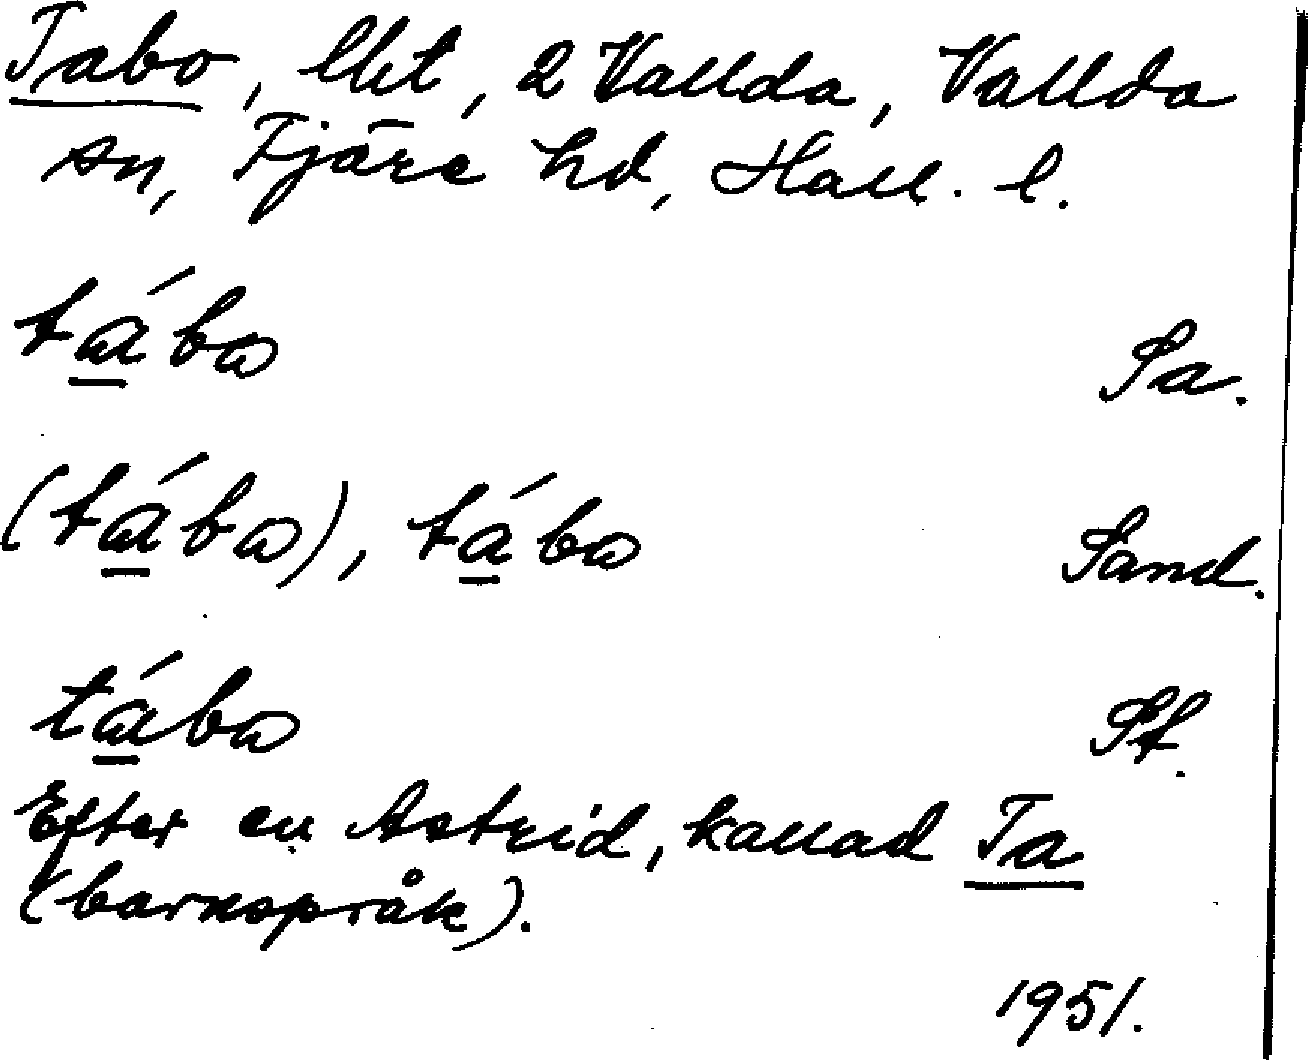 Tabo, lht, 2 Vallda, Vallda
sn, Fjäre hd, Hall. l.
tá̱bω Sa.
(tá̱bω), tá̱bω Sand.
tá̱bω Sf.
Efter en Astrid, kallad Ta
(barnspråk).
1951.